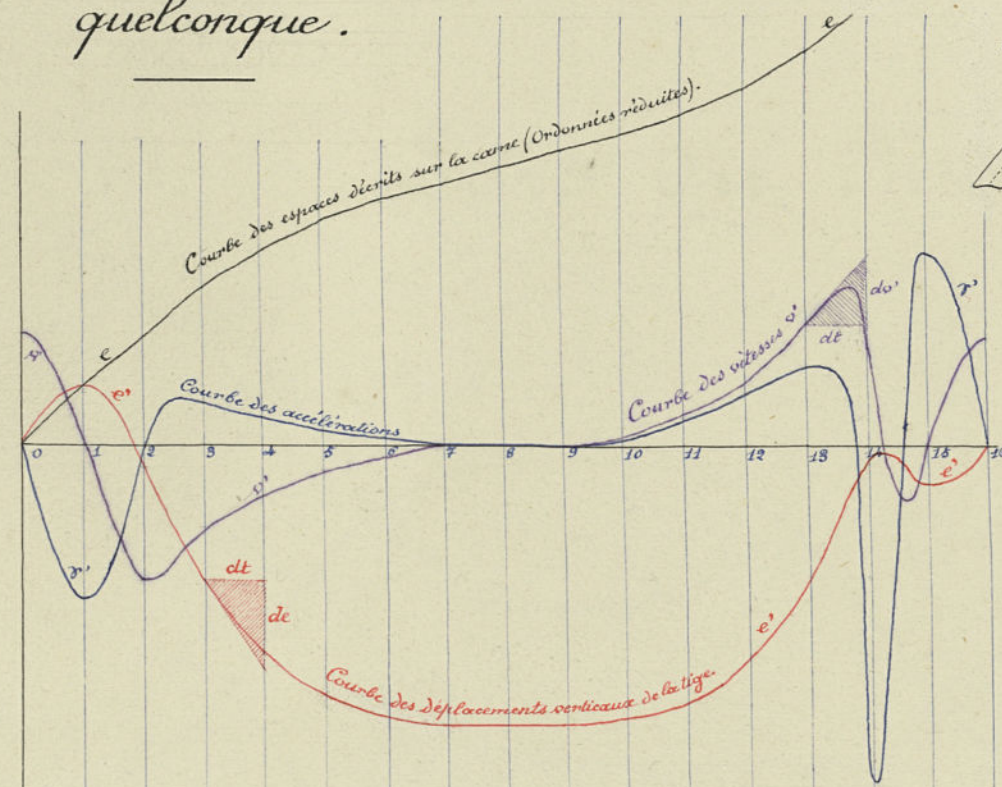 quelconque.
e
Courbe des espaces décrits sur la came (Ordonnées réduites).
e
v'
e'
Courbe des accélérations
Courbe des vitesses v'
dv'
dt
γ'
0 1 2 3 4 5 6 7 8 9 10 11 12 13 14 15 16
v'
γ'
e'
dt
de
e'
Courbe des déplacements verticaux de la tige.